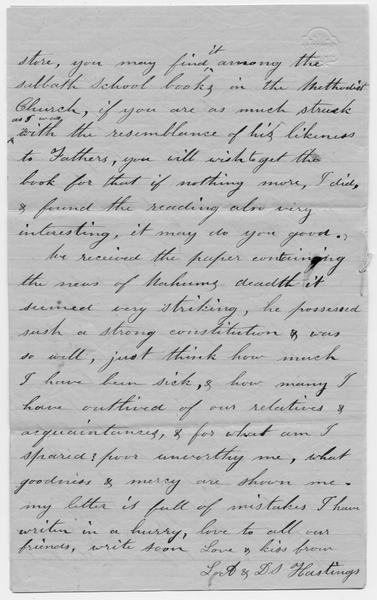 store, you may find it among the
sabbath School books in the Methodist
Church, if you are as much struck
as I was
with the resemblance of his likeness
to Fathers, you will wish to get the
book for that if nothing more, I did,
& found the reading also very
interesting, it may do you good.
We received the paper containing
the news of Nahums deadth it
seemed very striking, he possessed
sush a strong constitution & was
so well, just think how much
I have been sick, & how many I
have outlived of our relatives &
acquaintances, & for what am I
spared? poor unworthy me, what
goodness & mercy are shown me -
my letter is full of mistakes I have
writen in a hurry, love to all our
friends, write soon Love & kiss from
L A & D S Hastings